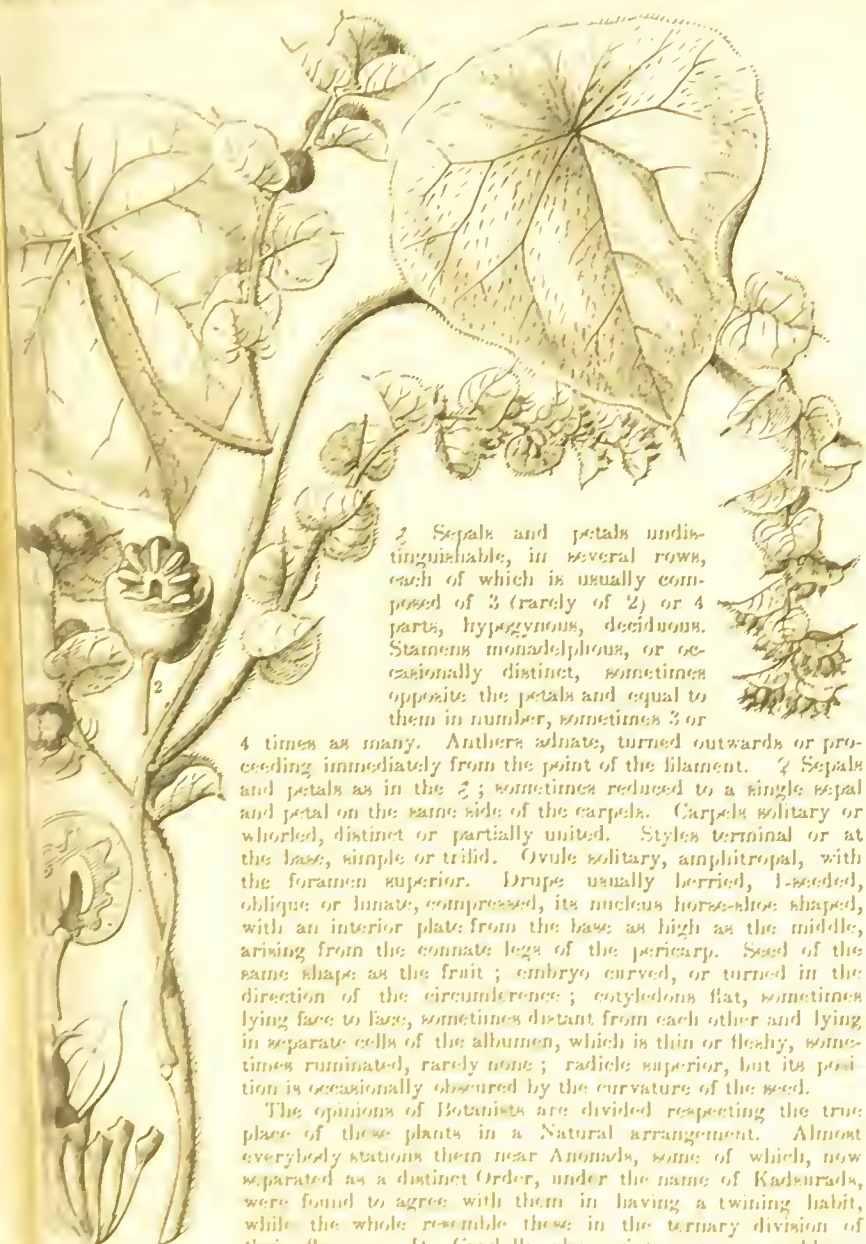 ♂ Sepals and petals undis-
tinguishable, in several rows,
each of which is usually com-
posed of 3 (rarely of 2) or 4
parts, hypogynous, deciduous.
Stamens monadelphous, or oc-
casionally distinct, sometimes
opposite the petals and equal to
them in number, sometimes 3 or
4 times as many. Anthers adnate, turned outwards or pro-
ceeding immediately from the point of the filament. ♀ Sepals
and petals as in the ♂ ; sometimes reduced to a single sepal
and petal on the same side of the carpels. Carpels solitary or
whorled, distinct or partially united. Styles terminal or at
the base, simple or trifid. Ovule solitary, amphitropal, with
the foramen superior. Drupe usually berried, 1-seeded,
oblique or lunate, compressed, its nucleus horse-shoe shaped,
with an interior plate from the base as high as the middle,
arising from the connate legs of the pericarp. Seed of the
same shape as the fruit ; embryo curved, or turned in the
direction of the circumference ; cotyledons flat, sometimes
lying face to face, sometimes distant from each other and lying
in separate cells of the albumen, which is thin or fleshy, some-
times ruminated, rarely none ; radicle superior, but its posi-
tion is occasionally obscured by the curvature of the seed.
The opinions of Botanists are divided respecting the true
place of these plants in a Natural arrangement. Almost
everybody stations them near Anonads, some of which, now
separated as a distinct Order, under the name of Kadsurads,
were found to agree with them in having a twining habit,
while the whole resemble these in the ternary division of
2